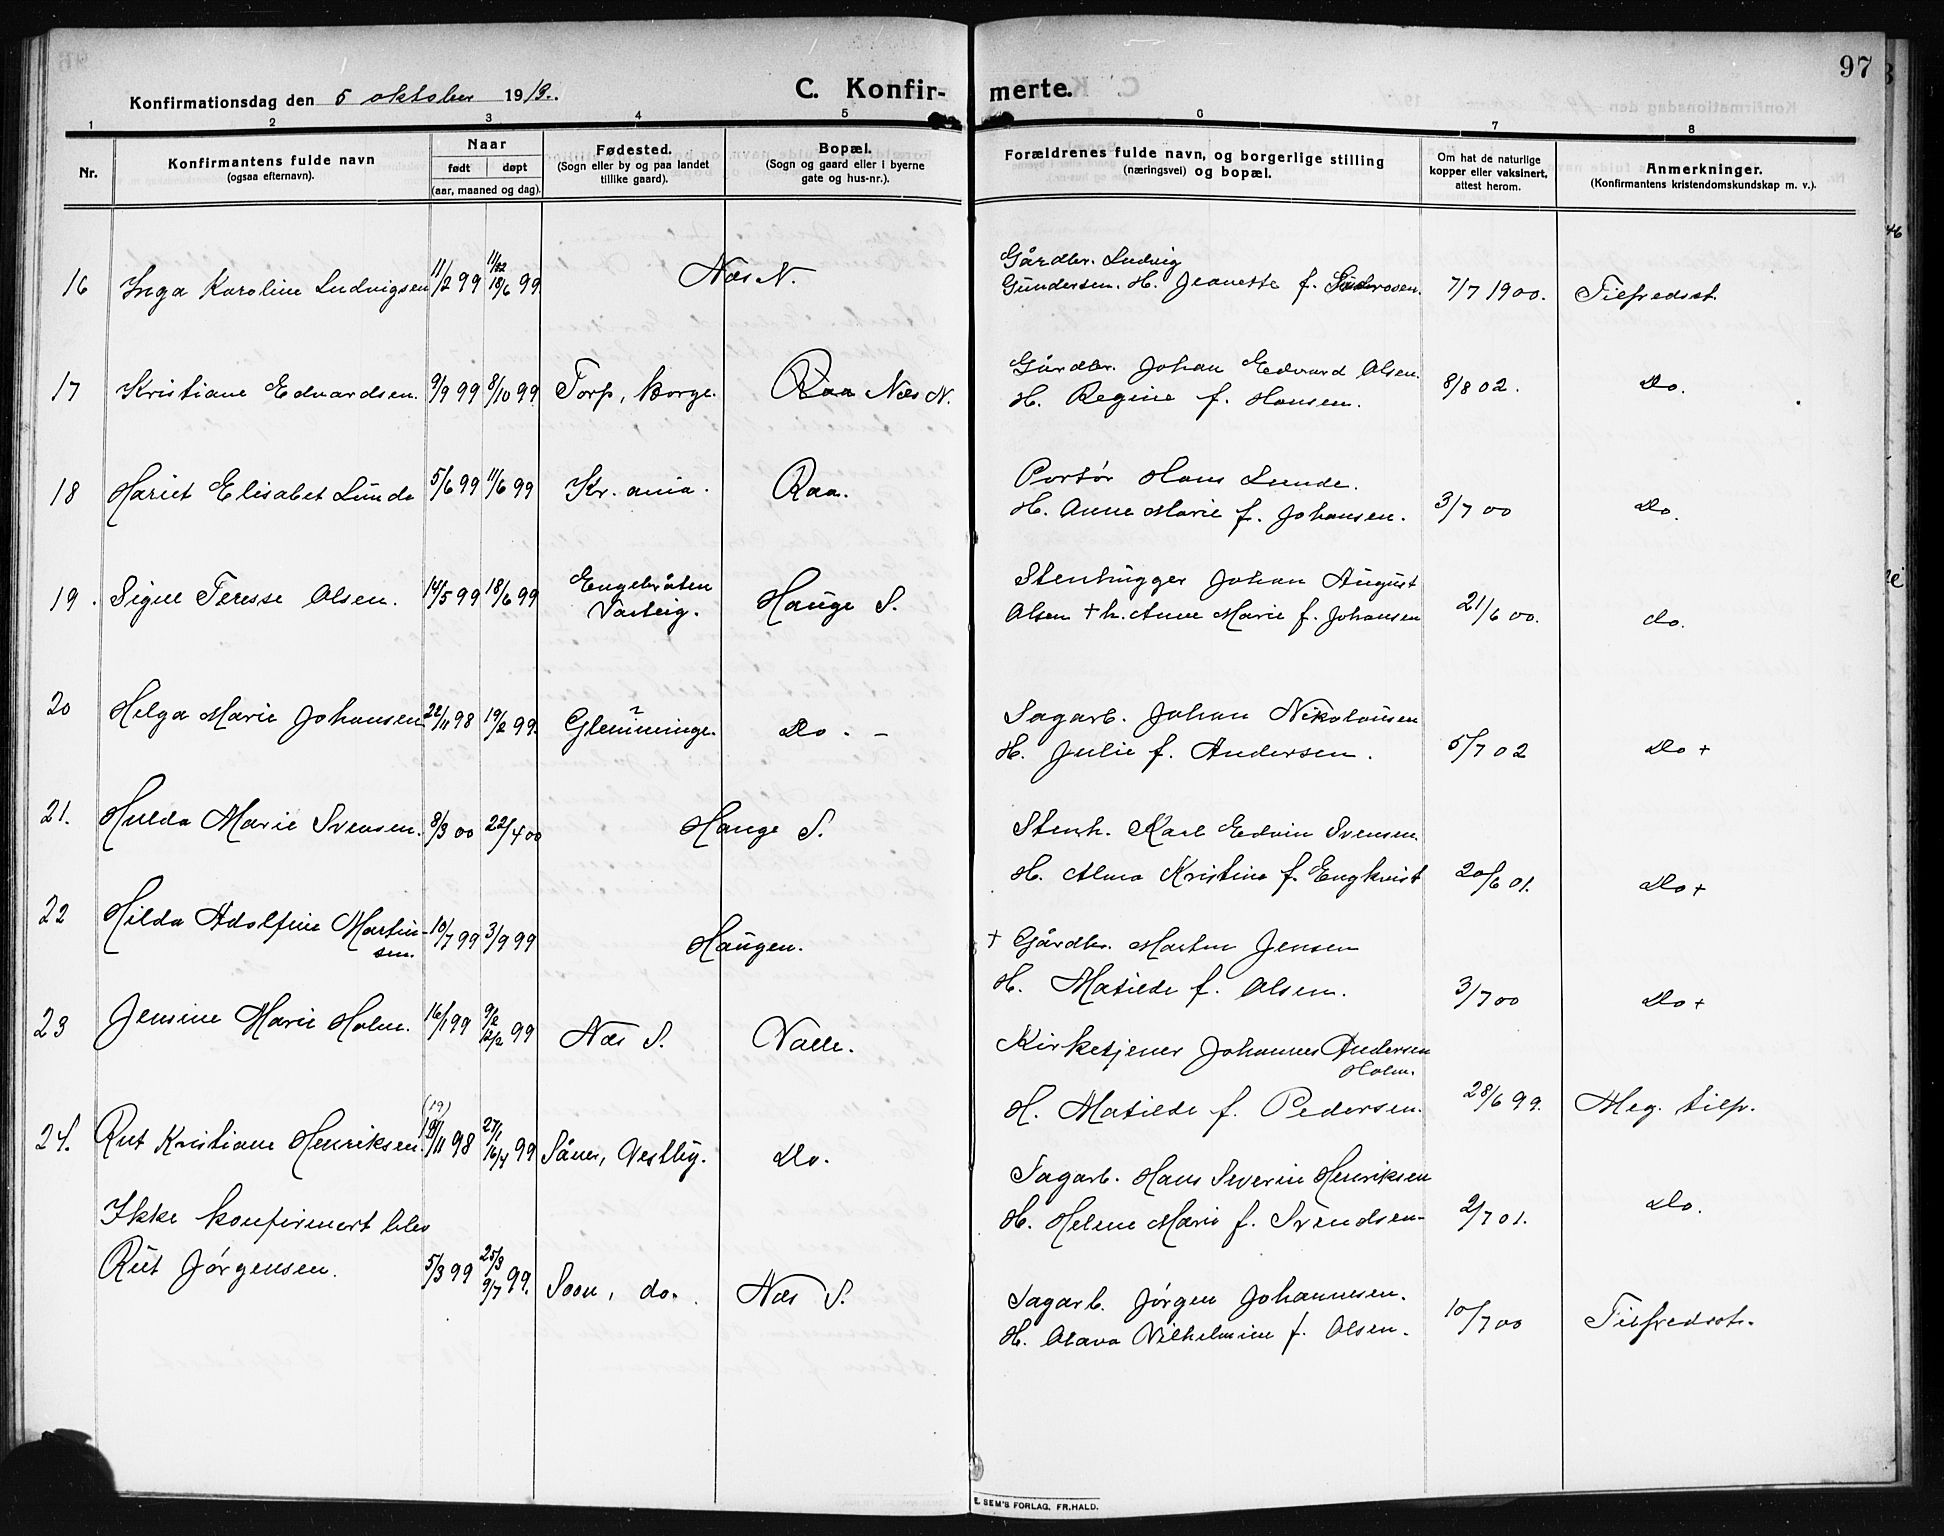 97
Konfirmationsdag den 5 oktober 1913.
C. Konfir- merte.
1 2 3 4 5 6 7 8
Nr.
Konfirmantens fulde navn
(ogsaa efternavn).
Naar
født døpt
(aar, maaned og dag).
Fødested.
(Sogn eller by og paa landet
tillike gaard).
Bopæl.
(Sogn og gaard eller i byerne
gate og hus-nr.).
Forældrenes fulde navn, og borgerlige stilling
(næringsvei) og bopæl.
Om hat de naturlige
kopper eller vaksinert,
attest herom.
Anmerkninger.
(Konfirmantens kristendomskundskap m. v.).
Gårdbr. Ludvig
16 Inga Karoline Ludvigsen 11/2 99 18/6 99 Næs N. Gundersen. H. Jeanette f. 7/7 1900. Tilfredsst.
Gårdbr. Johan Edvard Olsen.
17 Kristiane Edvardsen. 9/9 99 8/10 99 Torp, Borge. Raa Næs N. H. Regine f. Hansen. 8/8 02. Do.
Portør Hans Lunde.
18 Hariet Elisabet Lunde 5/6 99 11/6 99 Kr. ania. Raa. H. Anne Marie f. Johansen. 3/7 00 Do.
Engebråten Stenhugger Johan August
19. Signe Teresse Olsen. 14/5 99 18/6 99 Varteig. Hauge S. Olsen + h. Anne Marie f. Johansen 21/6 00. do.
Sagarb. Johan Nikolaisen
20 Helga Marie Johansen 22/11 98 19/2 99. Glemminge. Do. - H. Julie f. Andersen. 5/7 02 Do +
21. Hulda Marie Svensen. 8/3 00 22/4 00 Hauge S. Stenh. Karl Edvin Svensen.
H. Alma Kristine f. Engkvist 20/6 01. Do +
22 Hilda Adolfine Martin-
sen. 10/7 99 3/9 99 Haugen. + Gårdbr. Martin Jensen
H. Matilde f. Olsen. 3/7 00 Do +
23 Jensine Marie Holm. 16/1 99 9/2 12/2 99 Næs S. Valle. Kirketjener Johannes Andersen
Holm.
H. Matilde f. Pedersen. 28/6 99. Meg. tilfr.
(19)
24. Rut Kristiane Henriksen. /11 98 27/1 16/4 99 Såner, Vestby. Do.
Sagarb. Hans Severin Henriksen
H. Helene Marie f. Svendsen- 2/7 01. Do.
Ikke konfirmert blev
Rut Jørgensen. 5/3 99 25/3 9/7 99. Soon, do. Næs S.
Sagarb. Jørgen Johannesen.
H. Olava Vilhelmine f. Olsen. 10/7 00 Tilfredsst.
E. SEM'S FORLAG, FR.HALD.